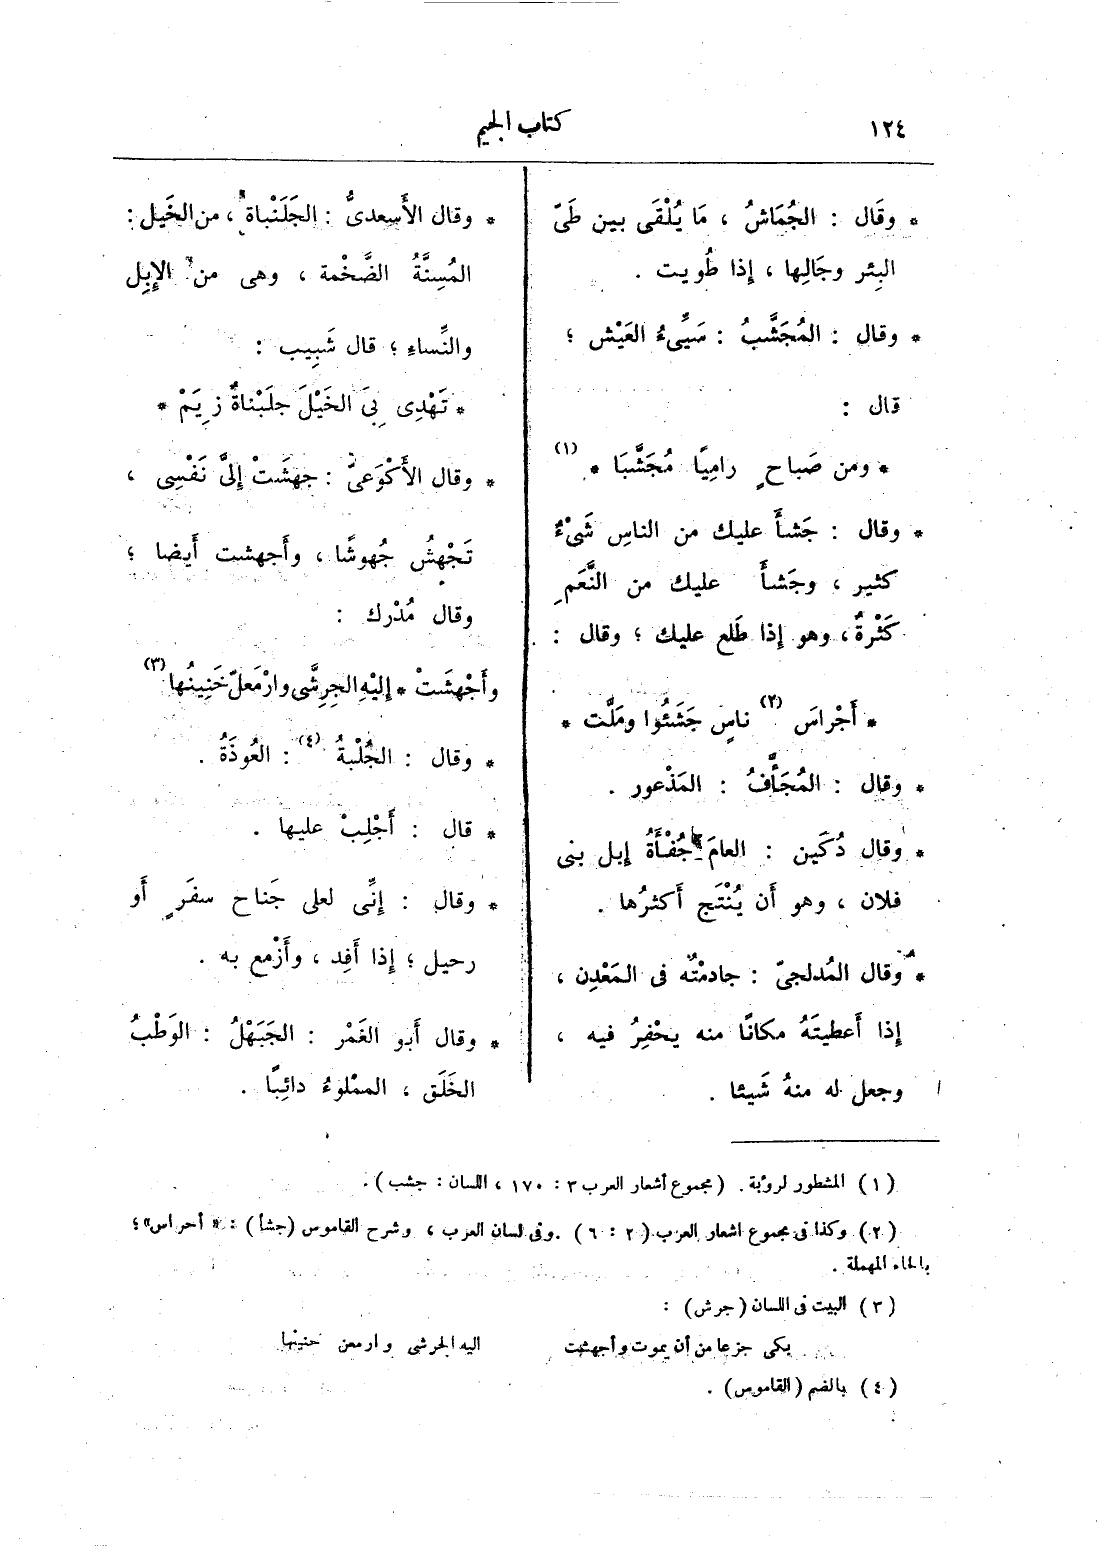 ١٢٤
كتاب الجيم
* وقَال : الجُمَاشُ ، مَا يُلْقَى بين طَيّ
البِئر وجَالِها ، إِذا طُويت .
* وقال : المُجَشَّبُ : سَيِّىءُ العَيْش ؛
قال :
* ومن صَباحٍ رامِيًا مُجَشَّبَا * (١)
* وقال : جَشأَ عليك من الناسِ شَىْءٌ
كثير ، وجَشأَ عليك من النَّعَمِ
كَثْرةٌ ، وهو إِذا طَلع عليك ؛ وقال :
* أَجْراسَ (٢) ناسٍ جَشَئُوا ومَلَّت *
* وقال : المُجَأَّفُ : المَذْعور .
* وقال دُكَين : العامَ جُفْأَةُ إِبل بنى
فلان ، وهو أَن يُنْتَج أَكثرُها .
* وقال المُدلجىّ : جادمْتُه فى المَعْدِن ،
إِذا أَعطيتَهُ مكانًا منه يحْفِرُ فيه ،
وجعل له منهُ شَيئا .
* وقال الأَسعدىُّ : الجَلَنْباة ، من الخَيل :
المُسِنَّةُ الضَّخْمة ، وهى من الإِبِل
والنِّساءِ ؛ قال شَبِيب :
* تَهْدِى بِىَ الخَيْلَ جلَبْناةٌ زِيَمْ *
* وقال الأَكْوَعىّ : جهشَتْ إِلىَّ نَفْسِى ،
تَجْهِشُ جُهوشًا ، وأَجهشت أَيضا ؛
وقال مُدْرك :
وأَجْهشَتْ * إِليْهِ الجِرِشَّى وارْمَعلّ خَنِينُها (٣)
* وقال : الجُلْبةُ (٤) : العُوذَةُ .
* قال : أَجْلِبْ عليها .
* وقال : إِنِّى لعلى جَناح سفَرٍ أَو
رحيل ؛ إِذا أَفِد ، وأَزْمع به .
* وقال أَبو الغَمْر : الجَبَهْلُ : الوَطْبُ
الخَلَق ، المملوءُ دائِبًا .
(١) المشطور لرؤبة . (مجموع أشعار العرب ٣ : ١٧٠ ، اللسان : جشب) .
(٢) وكذا فى مجموع اشعار العرب (٢ : ٦) . وفى لسان العرب ، وشرح القاموس (جشأ) : « أحراس » ؛
بالحاء المهملة .
(٣) البيت فى اللسان (جرش) :
بكى جزعا من أن يموت وأجهشت اليه الجرشى وارمعن خنينها
(٤) بالضم (القاموس) .